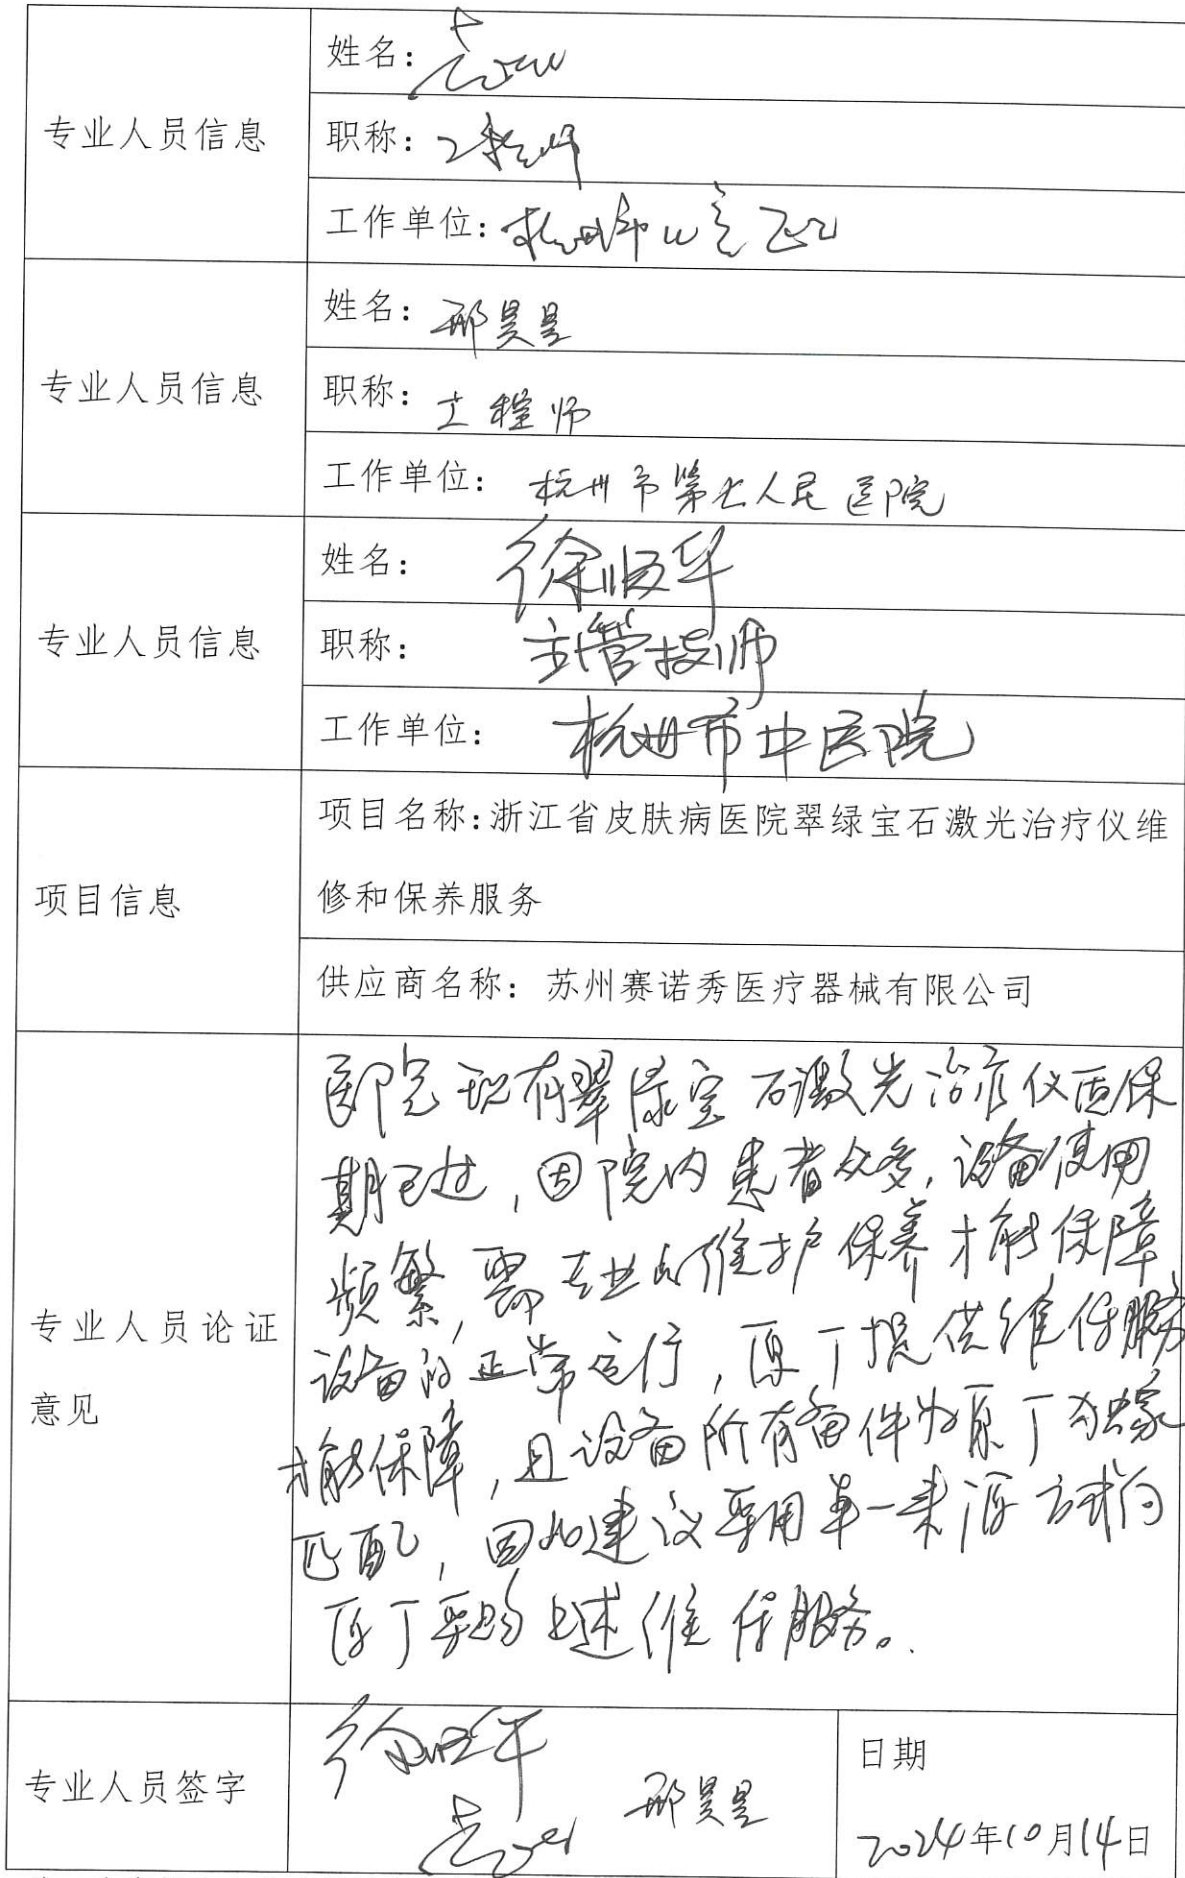 专业人员信息
姓名：
职称：工程师
工作单位：杭州市
专业人员信息
姓名：邢昊昱
职称：工程师
工作单位：杭州市第七人民医院
专业人员信息
姓名：徐顺华
职称：主管技师
工作单位：杭州市中医院
项目信息
项目名称：浙江省皮肤病医院翠绿宝石激光治疗仪维
修和保养服务
供应商名称：苏州赛诺秀医疗器械有限公司
专业人员论证
意见
医院现有翠绿宝石激光治疗仪质保
期已过，因院内患者众多，设备使用
频繁，需专业的维护保养才能保障
设备的正常运行，原厂提供维保服务
才能保障，且设备所有备件为原厂独家
匹配，因此建议采用单一来源方式向
原厂采购上述维保服务。
专业人员签字
徐顺华
邢昊昱
日期
2024年10月14日